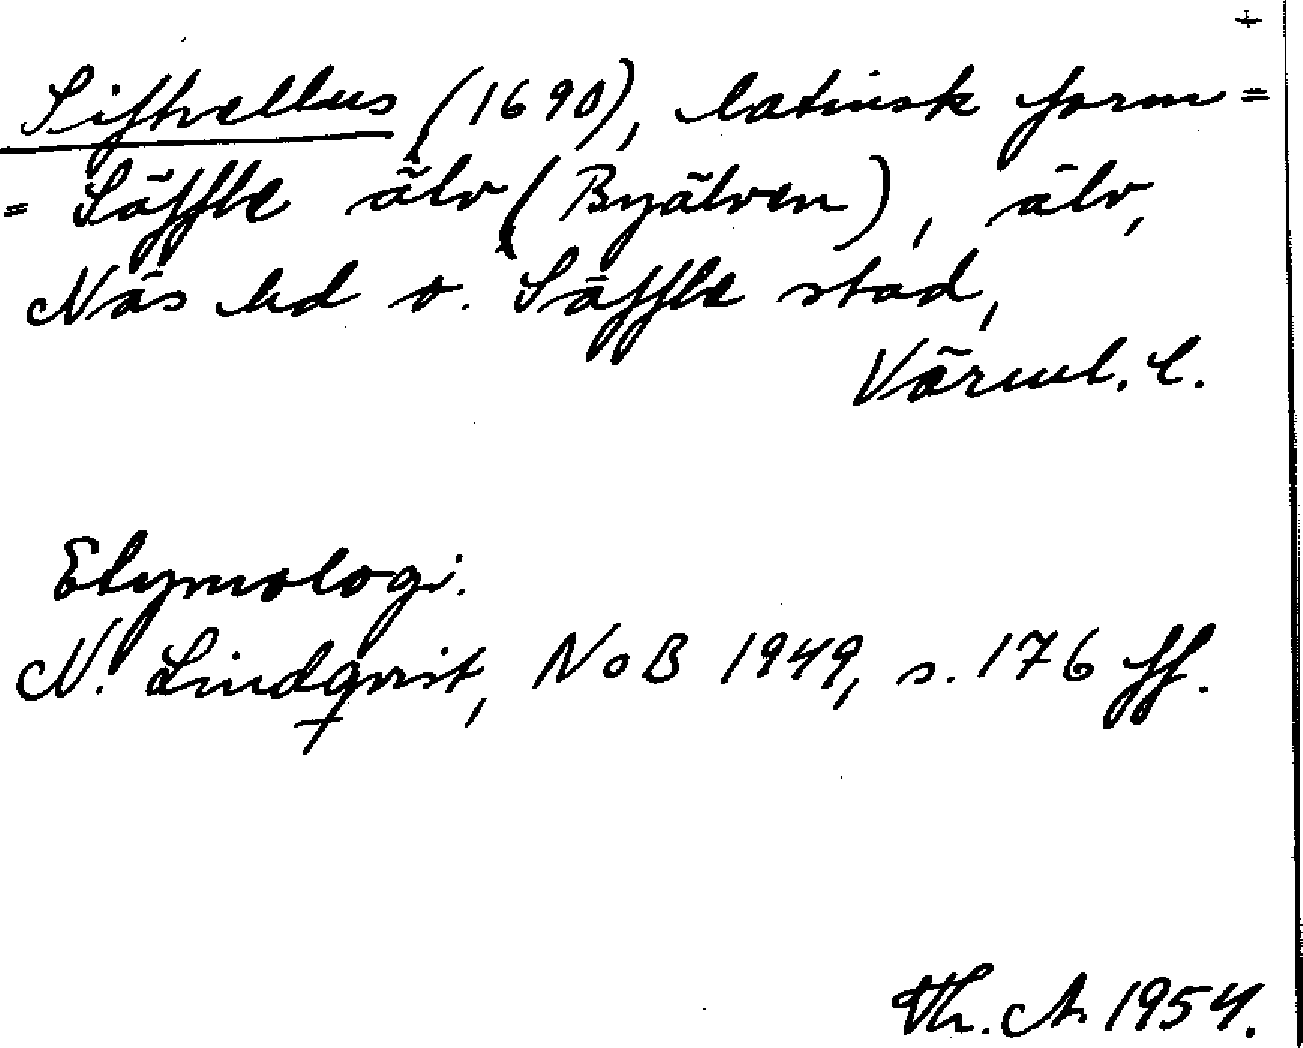 +
Sifhvellus (1690), latinsk form =
= Säffle älv (Byälven), älv,
Näs hd o. Säffle stad,
Värml. l.
Etymologi.
N. Lindqvist, NoB 1949, s. 176 ff.
Th. A. 1954.